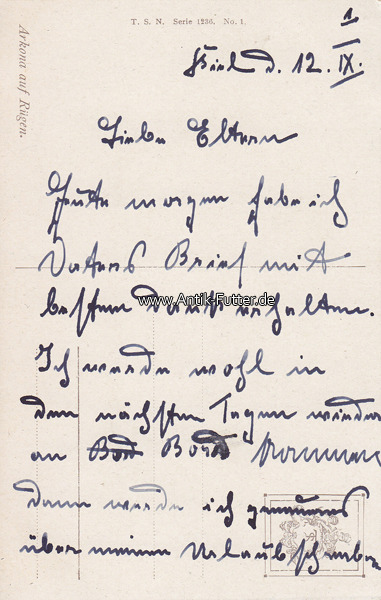 T. S. N. Serie 1236. No. 1.
Arkona auf Rügen.
1
Kiel d. 12. IX.
Liebe Eltern
Heute morgen habe ich
Vaters Brief mit
bestem Dank erhalten.
www.Antik-Futter.de
Ich werde wohl in
den nächsten Tagen wieder
an Bord kommen
dann werde ich genaueres
über meinen Urlaub schreiben